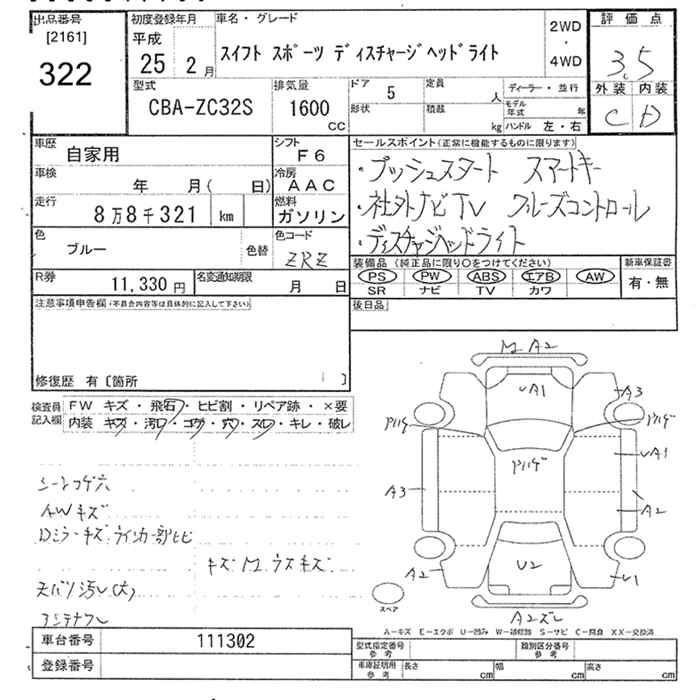 出品番号 初度登録年月 車名・グレード 2WD 評価点
[2161] 平成 ・ 3.5
322 25 2月 スイフト スポーツ ディスチャージヘッドライト 4WD 外装 内装
型式 排気量 ドア 5 定員 人 ディーラー・並行 C D
CBA-ZC32S 1600 形状 積載 モデル年式 年
CC kg ハンドル 左・右
車歴 自家用 シフト F6 セールスポイント(正常に機能するものに限ります)
車検 冷房 ・プッシュスタート スマートキー
年 月( 日) AAC
走行 燃料 ・社外ナビTV クルーズコントロール
8万8千321 km ガソリン
色 ブルー 色替 色コード ・ディスチャージヘッドライト
ZRZ 装備品(純正品に限り○をつけてください) 新車保証書
R券 11,330円 名変通知期限 月 日 PS PW ABS エアB AW 有・無
SR ナビ TV カワ
注意事項申告欄(不具合内容等は具体的に記入して下さい) 後日品
修復歴 有〔箇所 〕
検査員 FW キズ・飛石・ヒビ割・リペア跡・×要
記入欄 内装 キズ・汚れ・コゲ・穴・スレ・キレ・破レ
M A2
UA1
A3
UA1
A3
A2
シートコゲ穴
AWキズ
Dミラーキズ ウインカー部ヒビ
キズ M ウスキズ
天バリ汚レ(大)
A2
U2
U1
A2ズレ
スペア
A-キズ E-エクボ U-凹み W-補修跡 S-サビ C-腐食 XX-交換済
車台番号 111302 型式指定番号 参考 類別区分番号 参考
登録番号 車庫証明用 参考 長さ cm 幅 cm 高さ cm